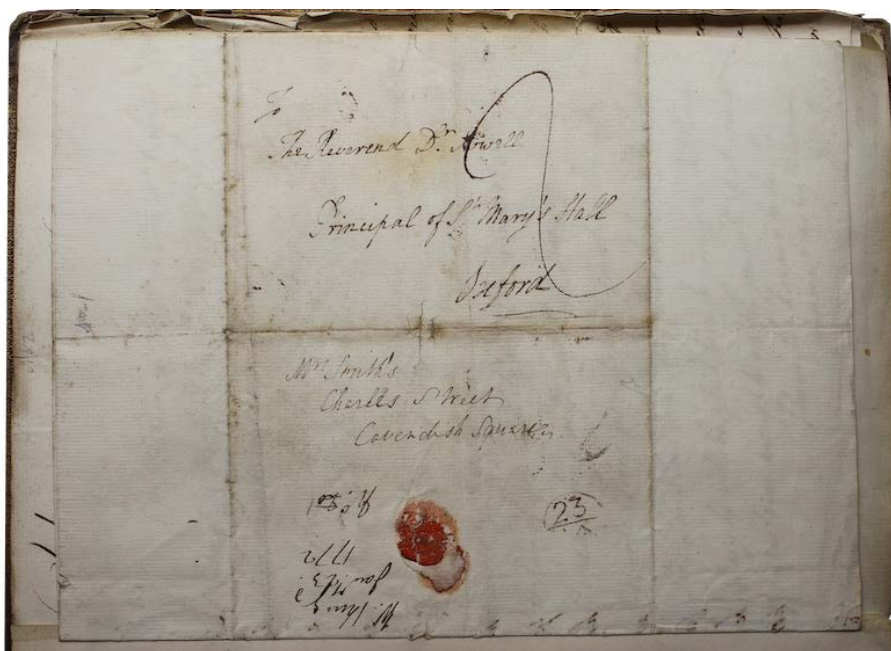 To
The Reverend Dr. Nowell
Principal of St. Mary's Hall
Oxford
Mrs. Smith's
Charles Street
Cavendish Square
23
1772